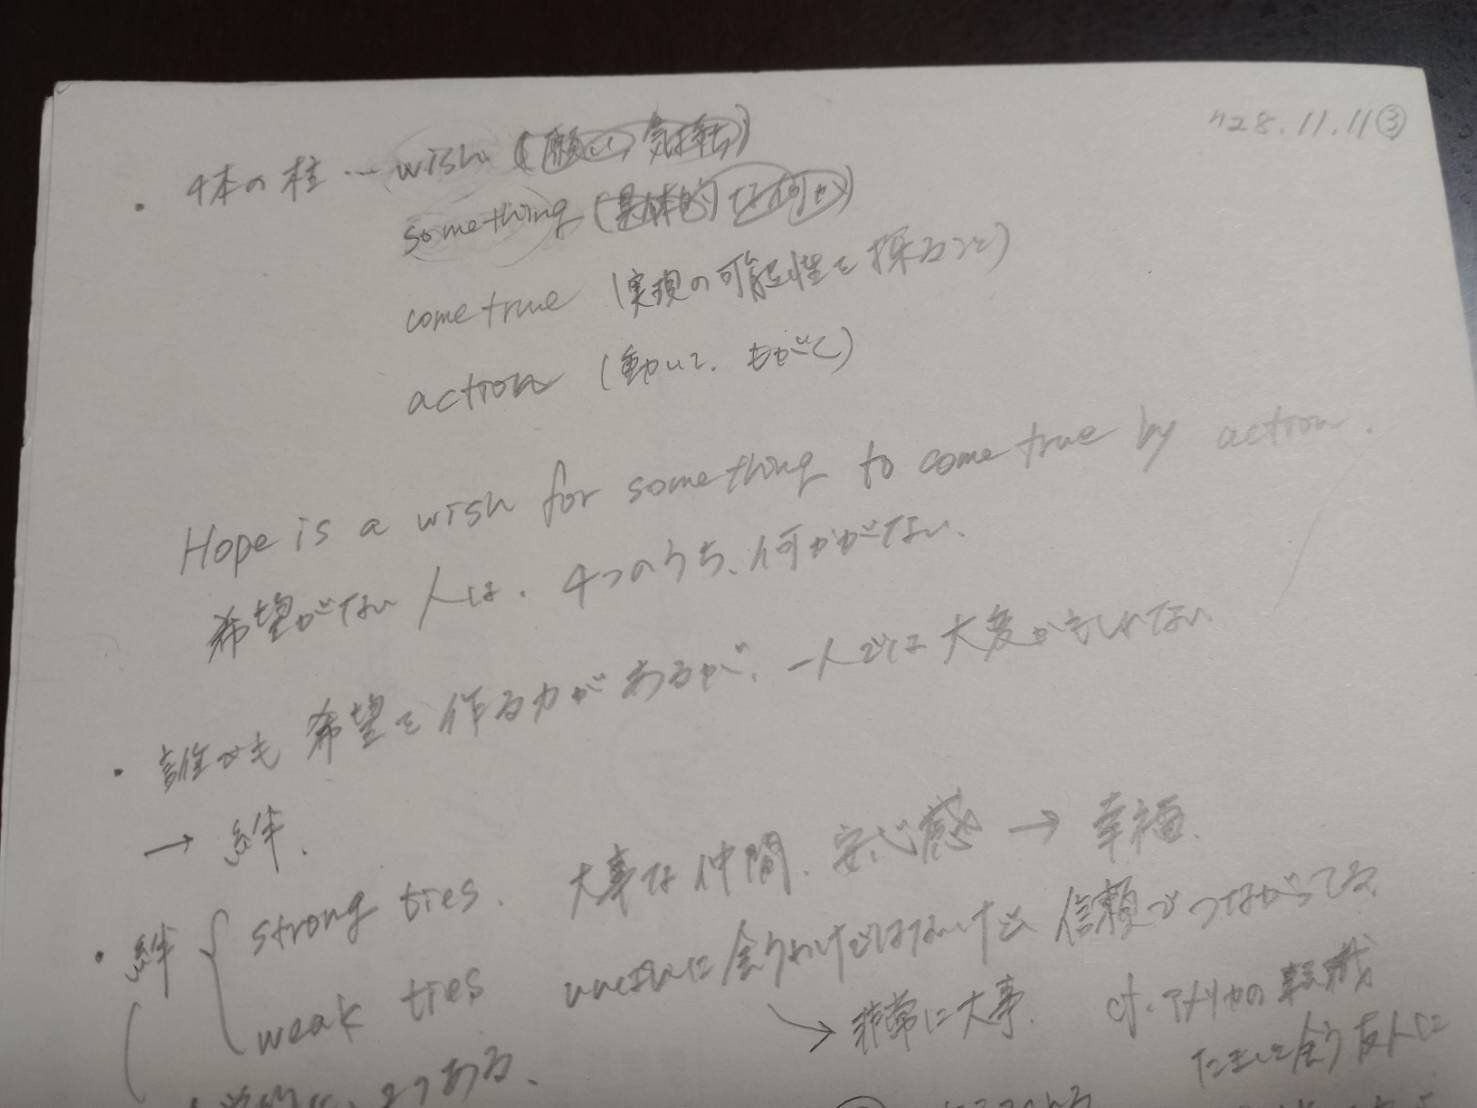 H28.11.11③
・4本の柱…wish (願い、気持ち)
something (具体的な何か)
come true (実現の可能性を探ること)
action (動いて、もがく)
Hope is a wish for something to come true by action.
希望がない人は、4つのうち、何かがない、
・誰でも希望を作る力があるが、一人では大変かもしれない
→ 絆、
・絆 { strong ties. 大事な仲間、安心感 → 幸福、
weak ties 会うわけではないけど、信頼でつながってる、
→ 非常に大事、 cf. アメリカの転職
たまに会う友人に
2つある、